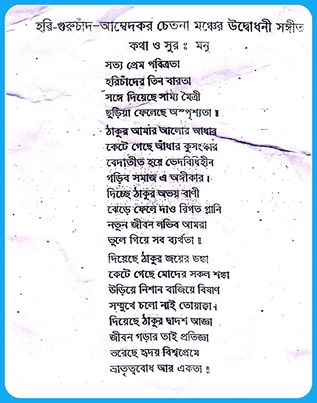 হরি-গুরুচাঁদ-আম্বেদকর চেতনা মঞ্চের উদ্বোধনী সঙ্গীত
কথা ও সুর : মনু
সত্য প্রেম পবিত্রতা
হরিচাঁদের তিন বারতা
সঙ্গে দিয়েছে সাম্য মৈত্রী
ছুড়িয়া ফেলেছে অস্পৃশ্যতা ॥
ঠাকুর আমার আলোর আধার
কেটে গেছে আঁধার কুসংস্কার
বেদাতীত হবে ভেদবিধিহীন
গড়িব সমাজ এ অঙ্গীকার ।
দিচ্ছে ঠাকুর অভয় বাণী
ঝেড়ে ফেলে দাও বিগত গ্লানি
নতুন জীবন লভিব আমরা
ভুলে গিয়ে সব ব্যর্থতা ॥
দিয়েছে ঠাকুর জয়ের ডঙ্কা
কেটে গেছে মোদের সকল শঙ্কা
উড়িয়ে নিশান বাজিয়ে বিষাণ
সম্মুখে চলো নাই তোয়াক্কা ।
দিয়েছে ঠাকুর দ্বাদশ আজ্ঞা
জীবন গড়ার তাই প্রতিজ্ঞা
ভরেছে হৃদয় বিশ্বপ্রেমে
ভ্রাতৃত্ববোধ আর একতা ॥